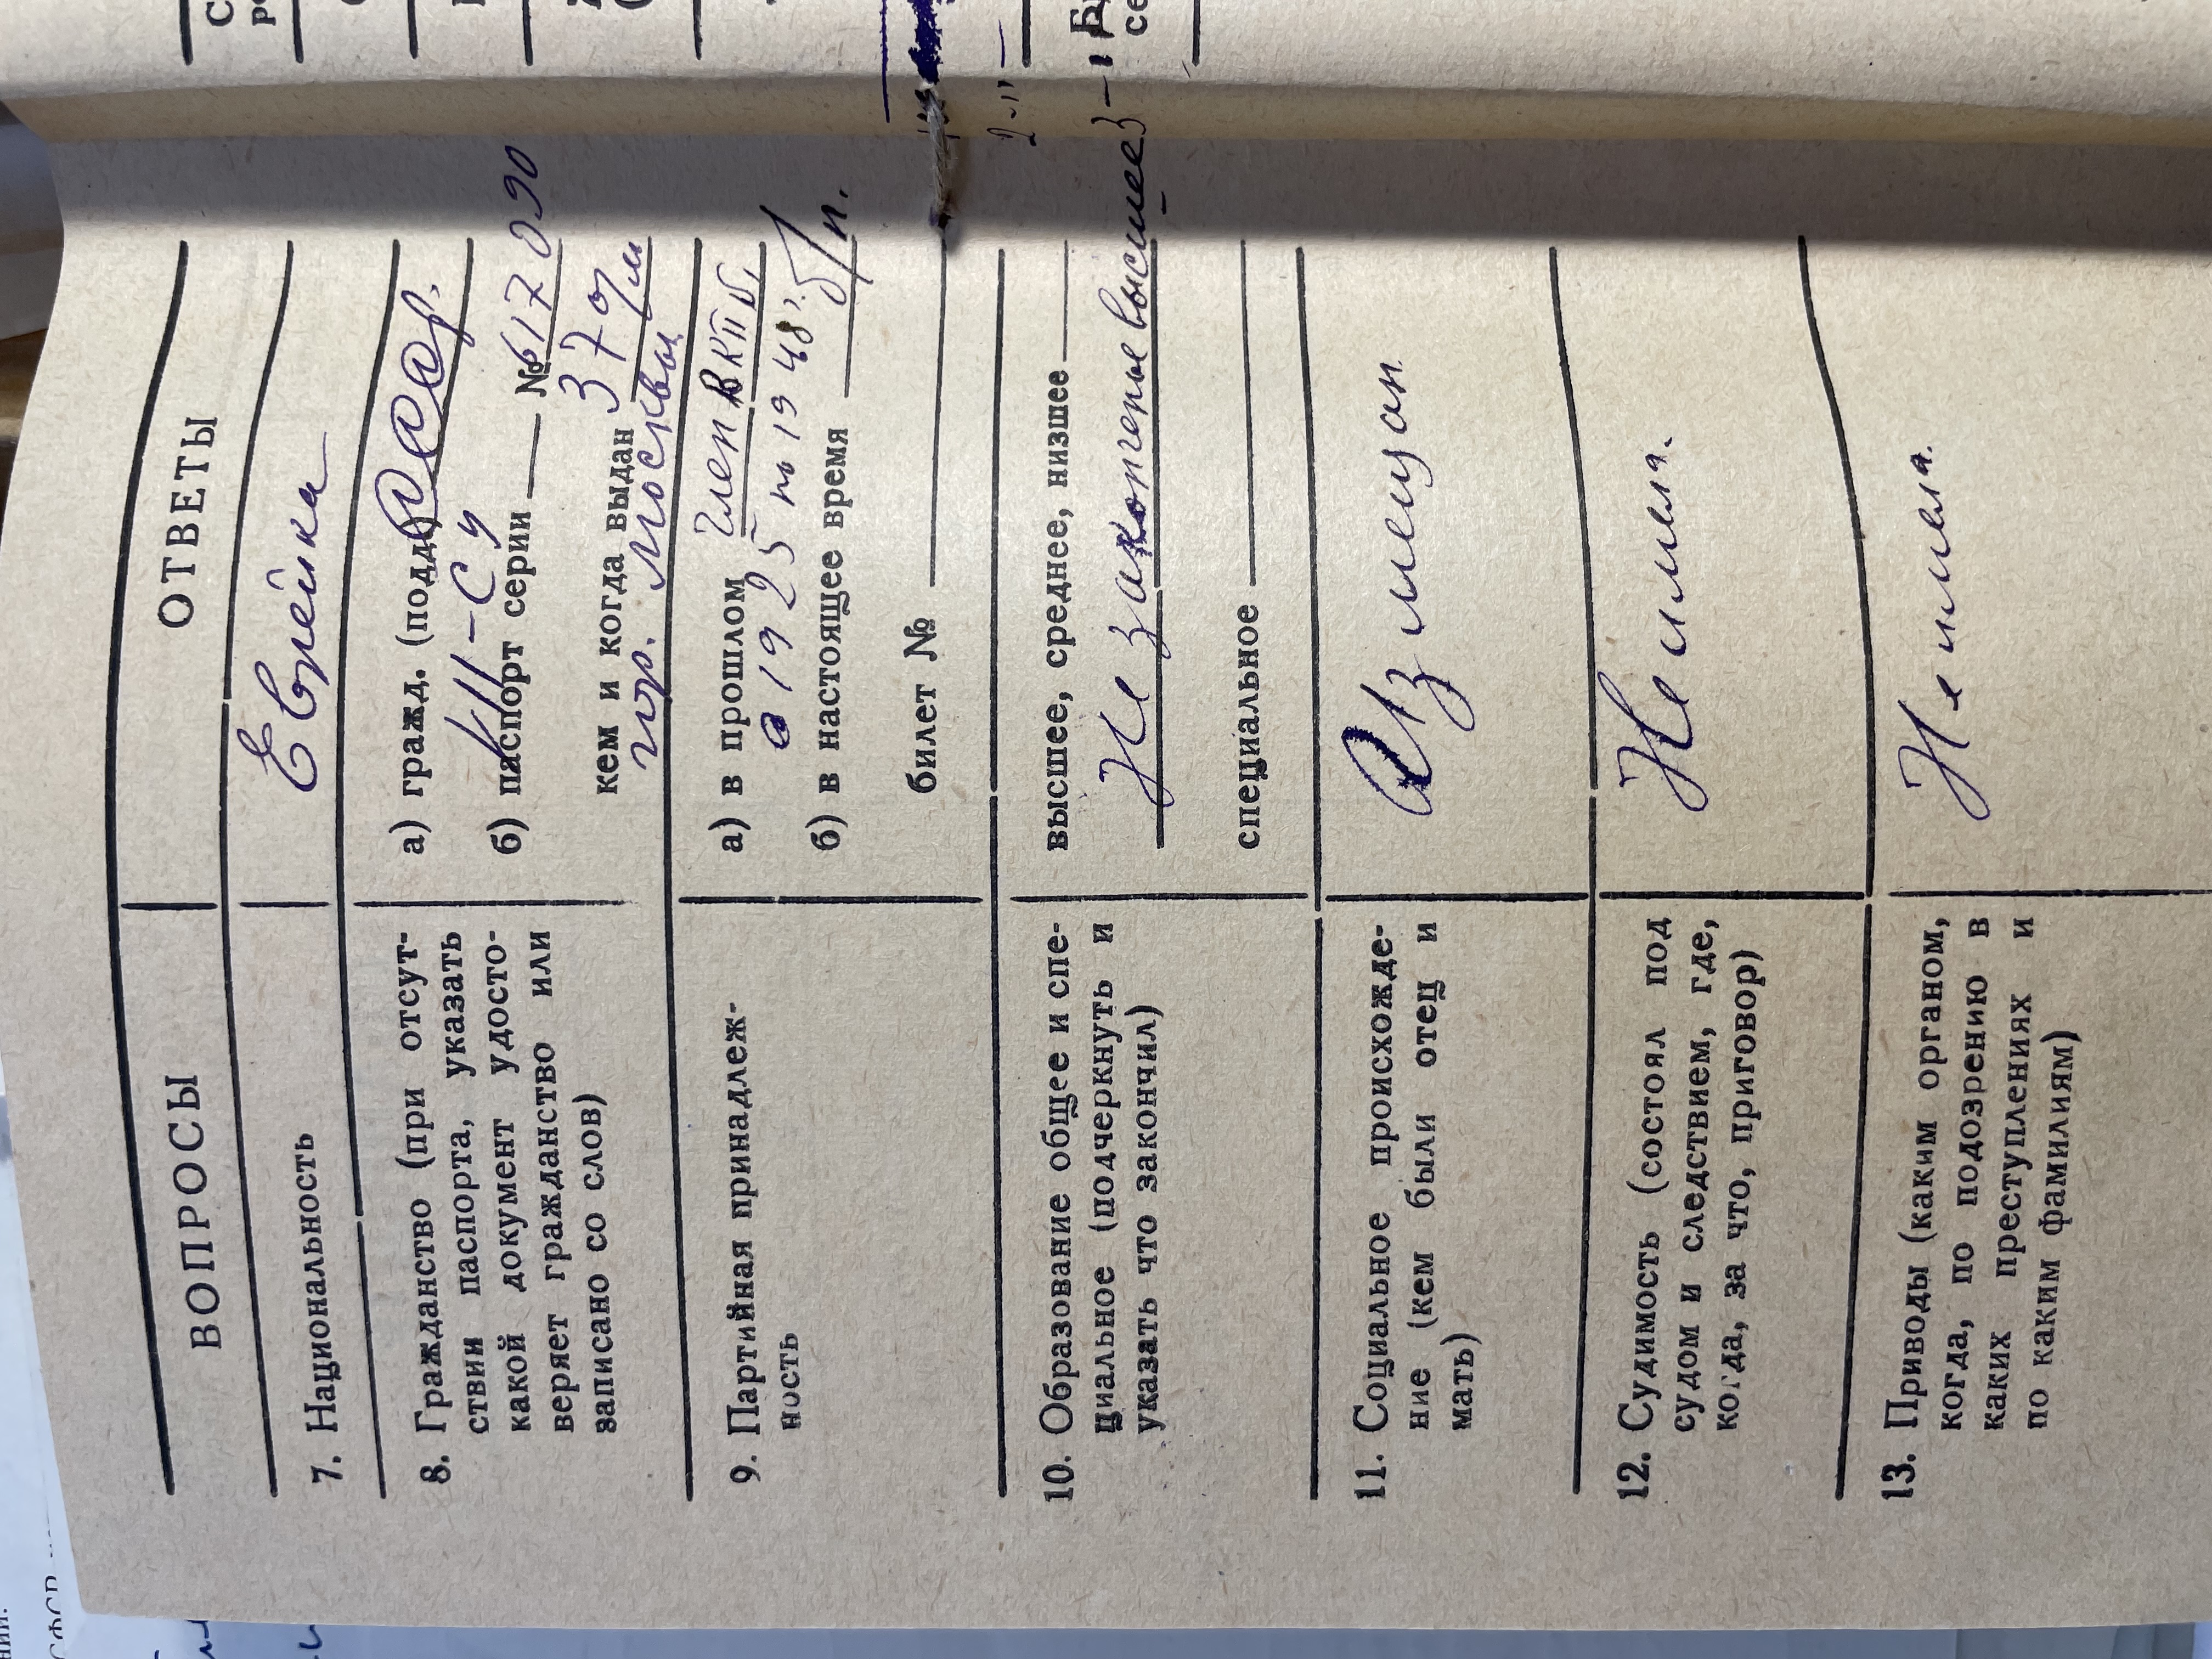 ВОПРОСЫ
ОТВЕТЫ
7. Национальность
Еврейка
8. Гражданство (при отсут-
ствии паспорта, указать
какой документ удосто-
веряет гражданство или
записано со слов)
а) гражд. (подд.) СССР.
б) паспорт серии — №617090
кем и когда выдан 37 о/м
гор. Москвы
9. Партийная принадлеж-
ность
а) в прошлом Член ВКПб,
с 1925 по 1948г.
б) в настоящее время б/п.
билет №
10. Образование общее и спе-
циальное (подчеркнуть и
указать что закончил)
высшее, среднее, низшее
Не законченое высшее
специальное
11. Социальное происхожде-
ние (кем были отец и
мать)
Из мещан
12. Судимость (состоял под
судом и следствием, где,
когда, за что, приговор)
Не имела.
13. Приводы (каким органом,
когда, по подозрению в
каких преступлениях и
по каким фамилиям)
Не имела.